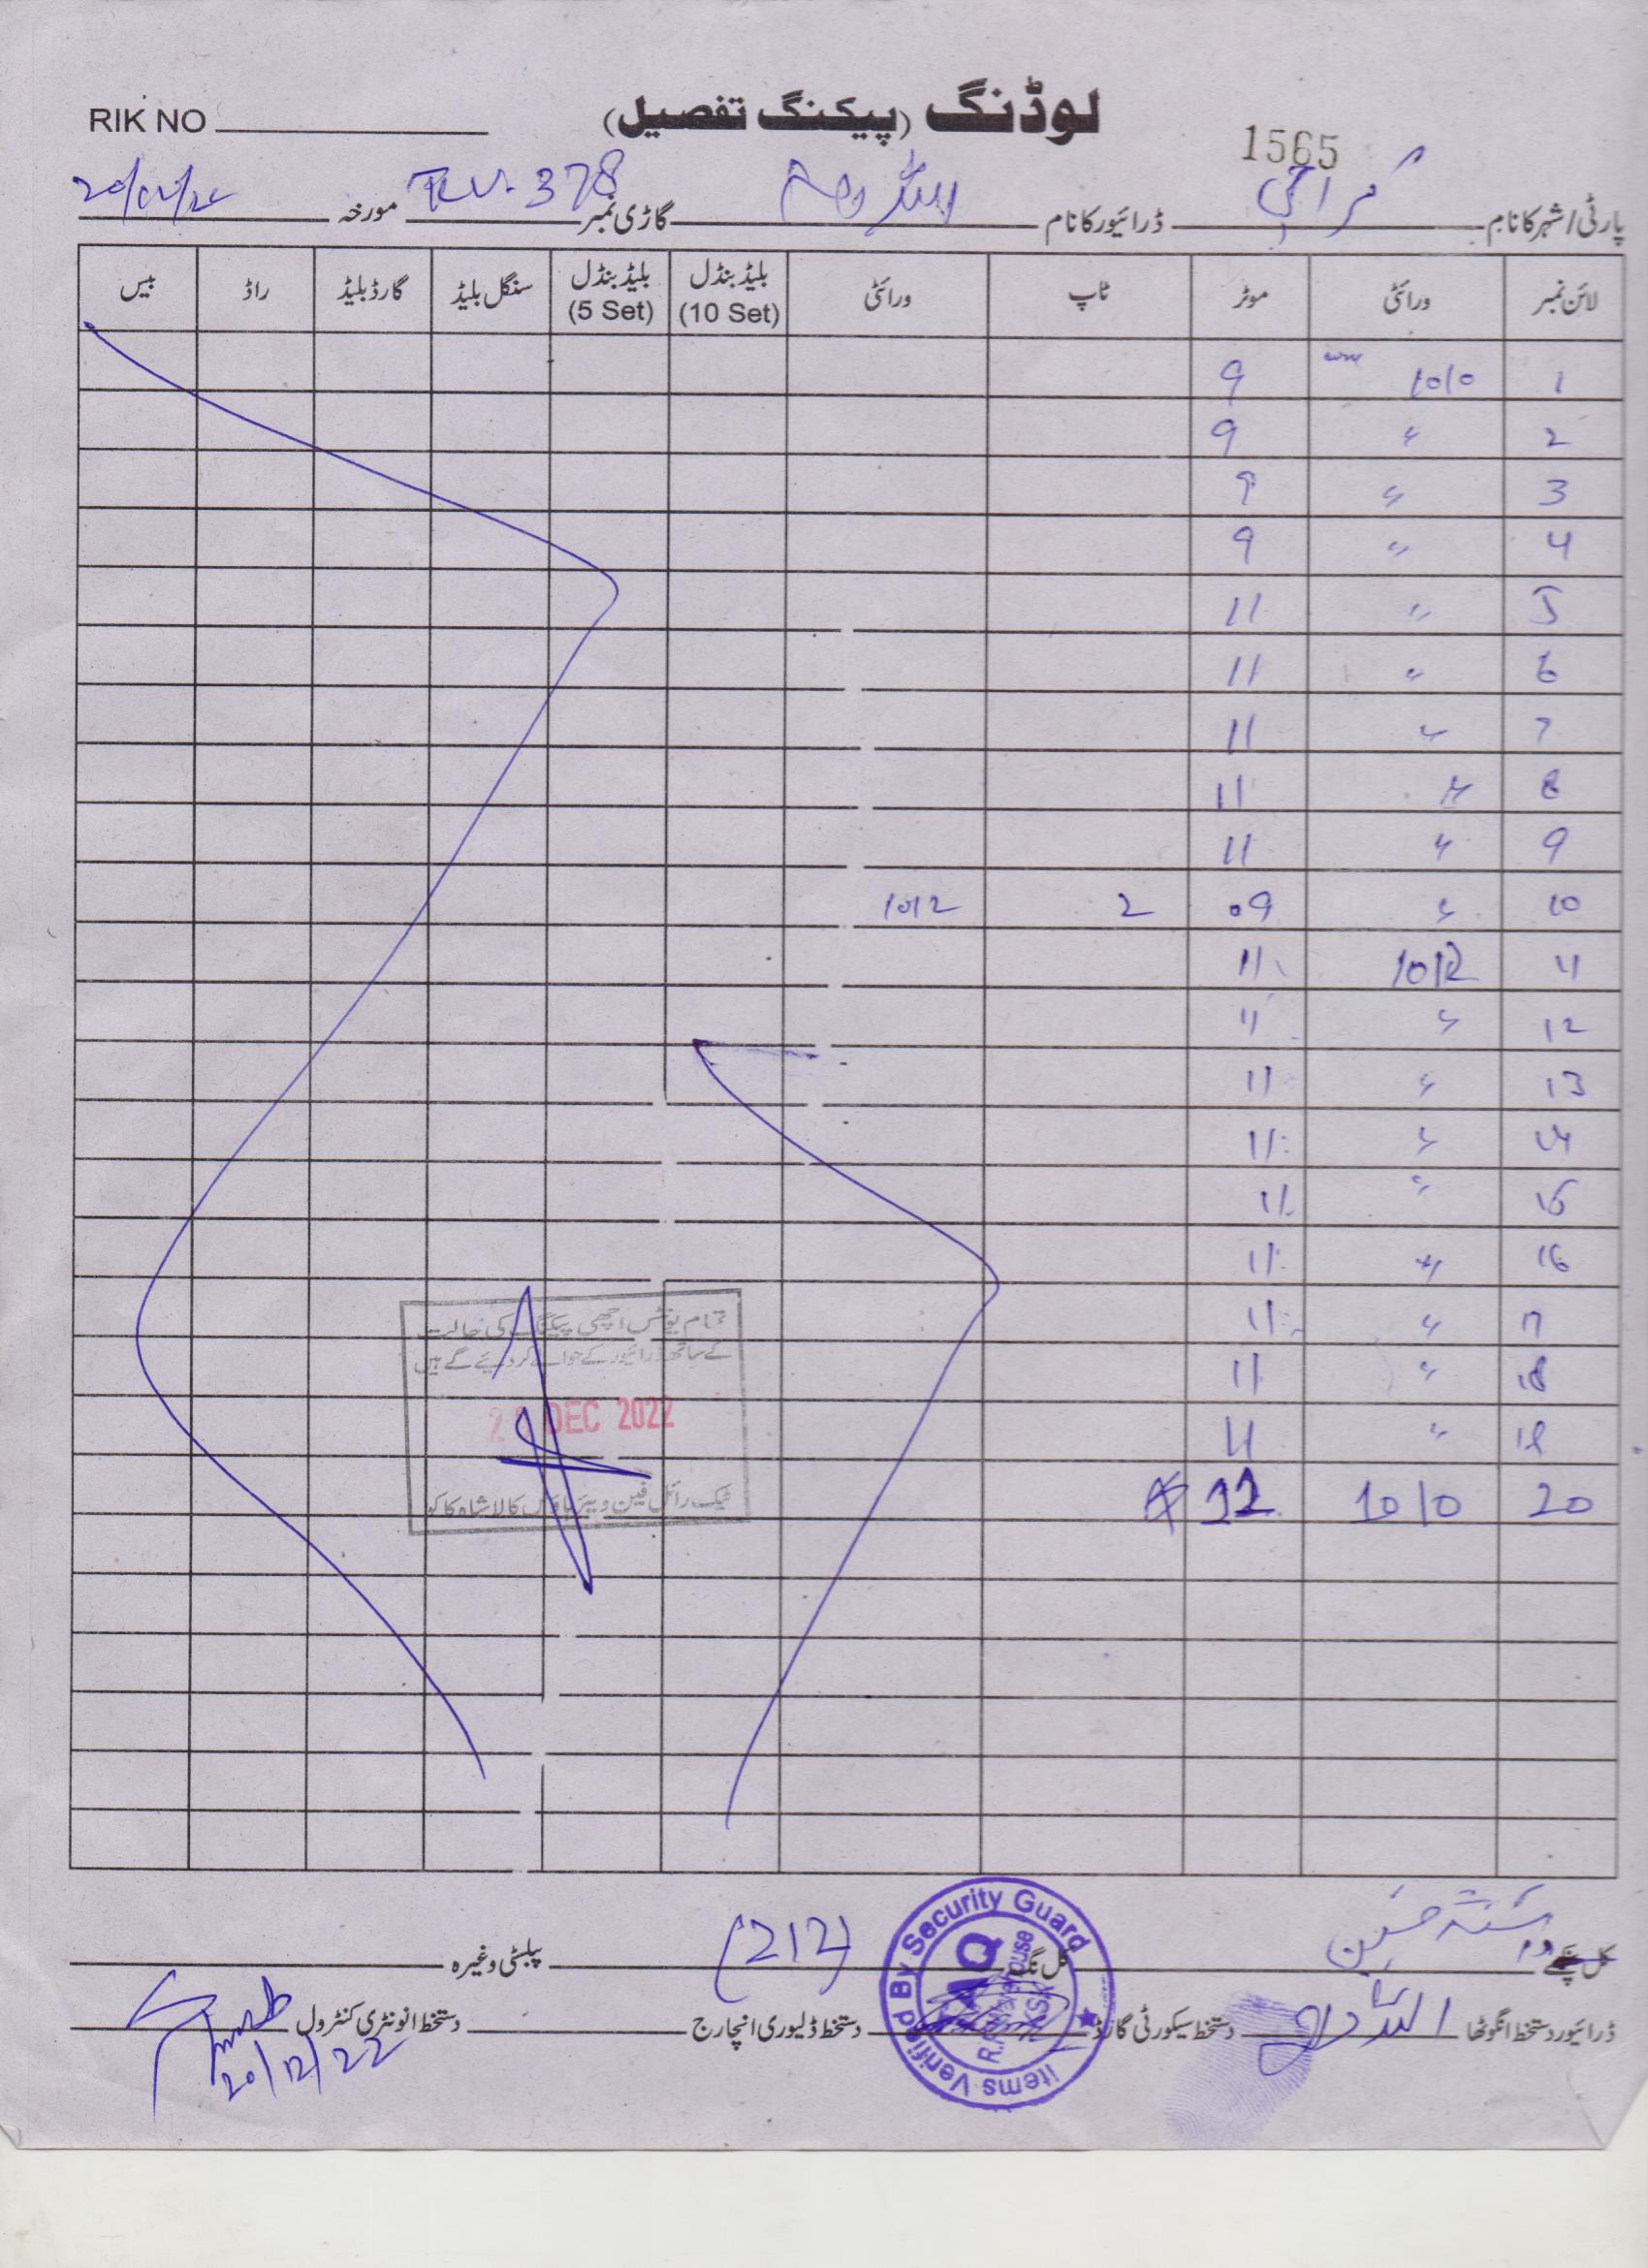 لوڈنگ (پیکنگ تفصیل)
RIK NO
1565
پارٹی/شہر کا نام کراچی ڈرائیور کا نام گاڑی نمبر 378 مورخہ
لائن نمبر ورائٹی موٹر ٹاپ ورائٹی بلیڈ بنڈل (10 Set) بلیڈ بنڈل (5 Set) سنگل بلیڈ گارڈ بلیڈ راڈ بیس
1 1010 9
2 〃 9
3 〃 9
4 〃 9
5 〃 11
6 〃 11
7 〃 11
8 〃 11
9 〃 11
10 〃 09 2 1012
11 1012 11
12 〃 11
13 〃 11
14 〃 11
15 〃 11
16 〃 11
17 〃 11
18 〃 11
19 〃 11
20 1010
تمام یونٹس اچھی پیکنگ کی حالت
کے ساتھ ڈرائیور کے حوالے کر دیئے گے ہیں
DEC 2022
رائل فین ویئر ہاؤس کالا شاہ کاکو
کل پنکھے کل نگ (212) پبلسٹی وغیرہ
ڈرائیور دستخط انگوٹھا دستخط سیکورٹی گارڈ دستخط ڈلیوری انچارج دستخط انونٹری کنٹرول
20/12/22
items Verified By Security Guard
AQ